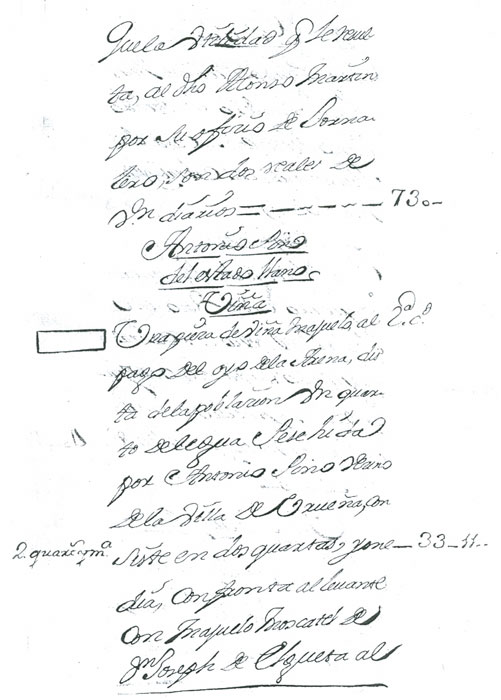 Que la Utilidad q. le resul
ta, al dho Alonso Martin
por su oficio de Jorna
lero, son dos reales de
Vn diarios = 730
Antonio Pino
del estado llano
Viña
Una pieza de Viña majuelo al
pago del oyo de la Arena, dis
ta de la poblacion Un quar
to de legua Se se hizo
por Antonio Pino Vecino
de la Villa de Con
2 quar.s y m.a siste en dos quartas, y me 33-11
dia, Confronta al levante
Con majuelo moscatel de
Joseph de Elgueta al